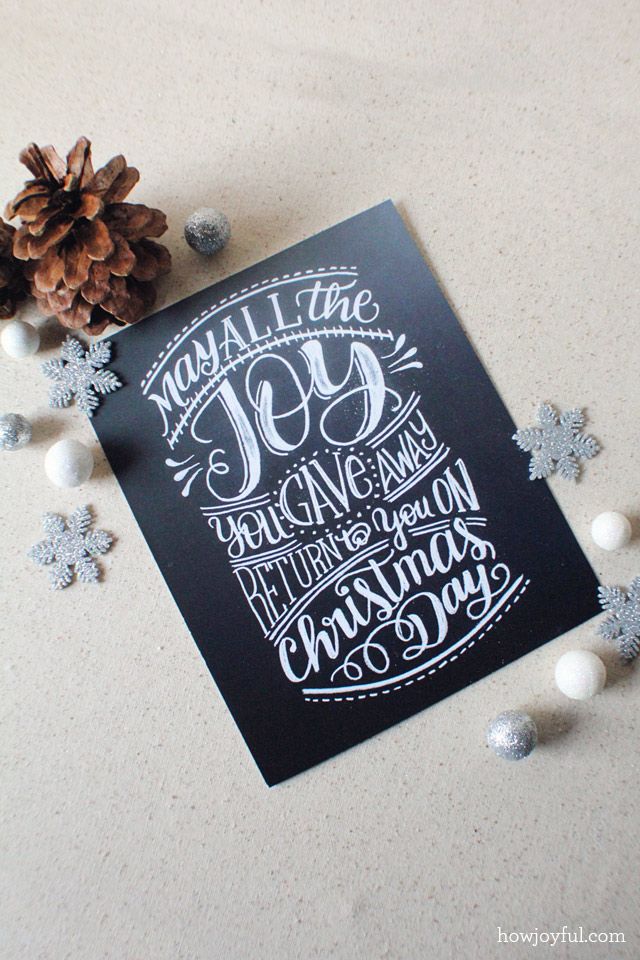 May ALL the
Joy
You GAVE AWAY
RETURN to You ON
Christmas
Day
howjoyful.com